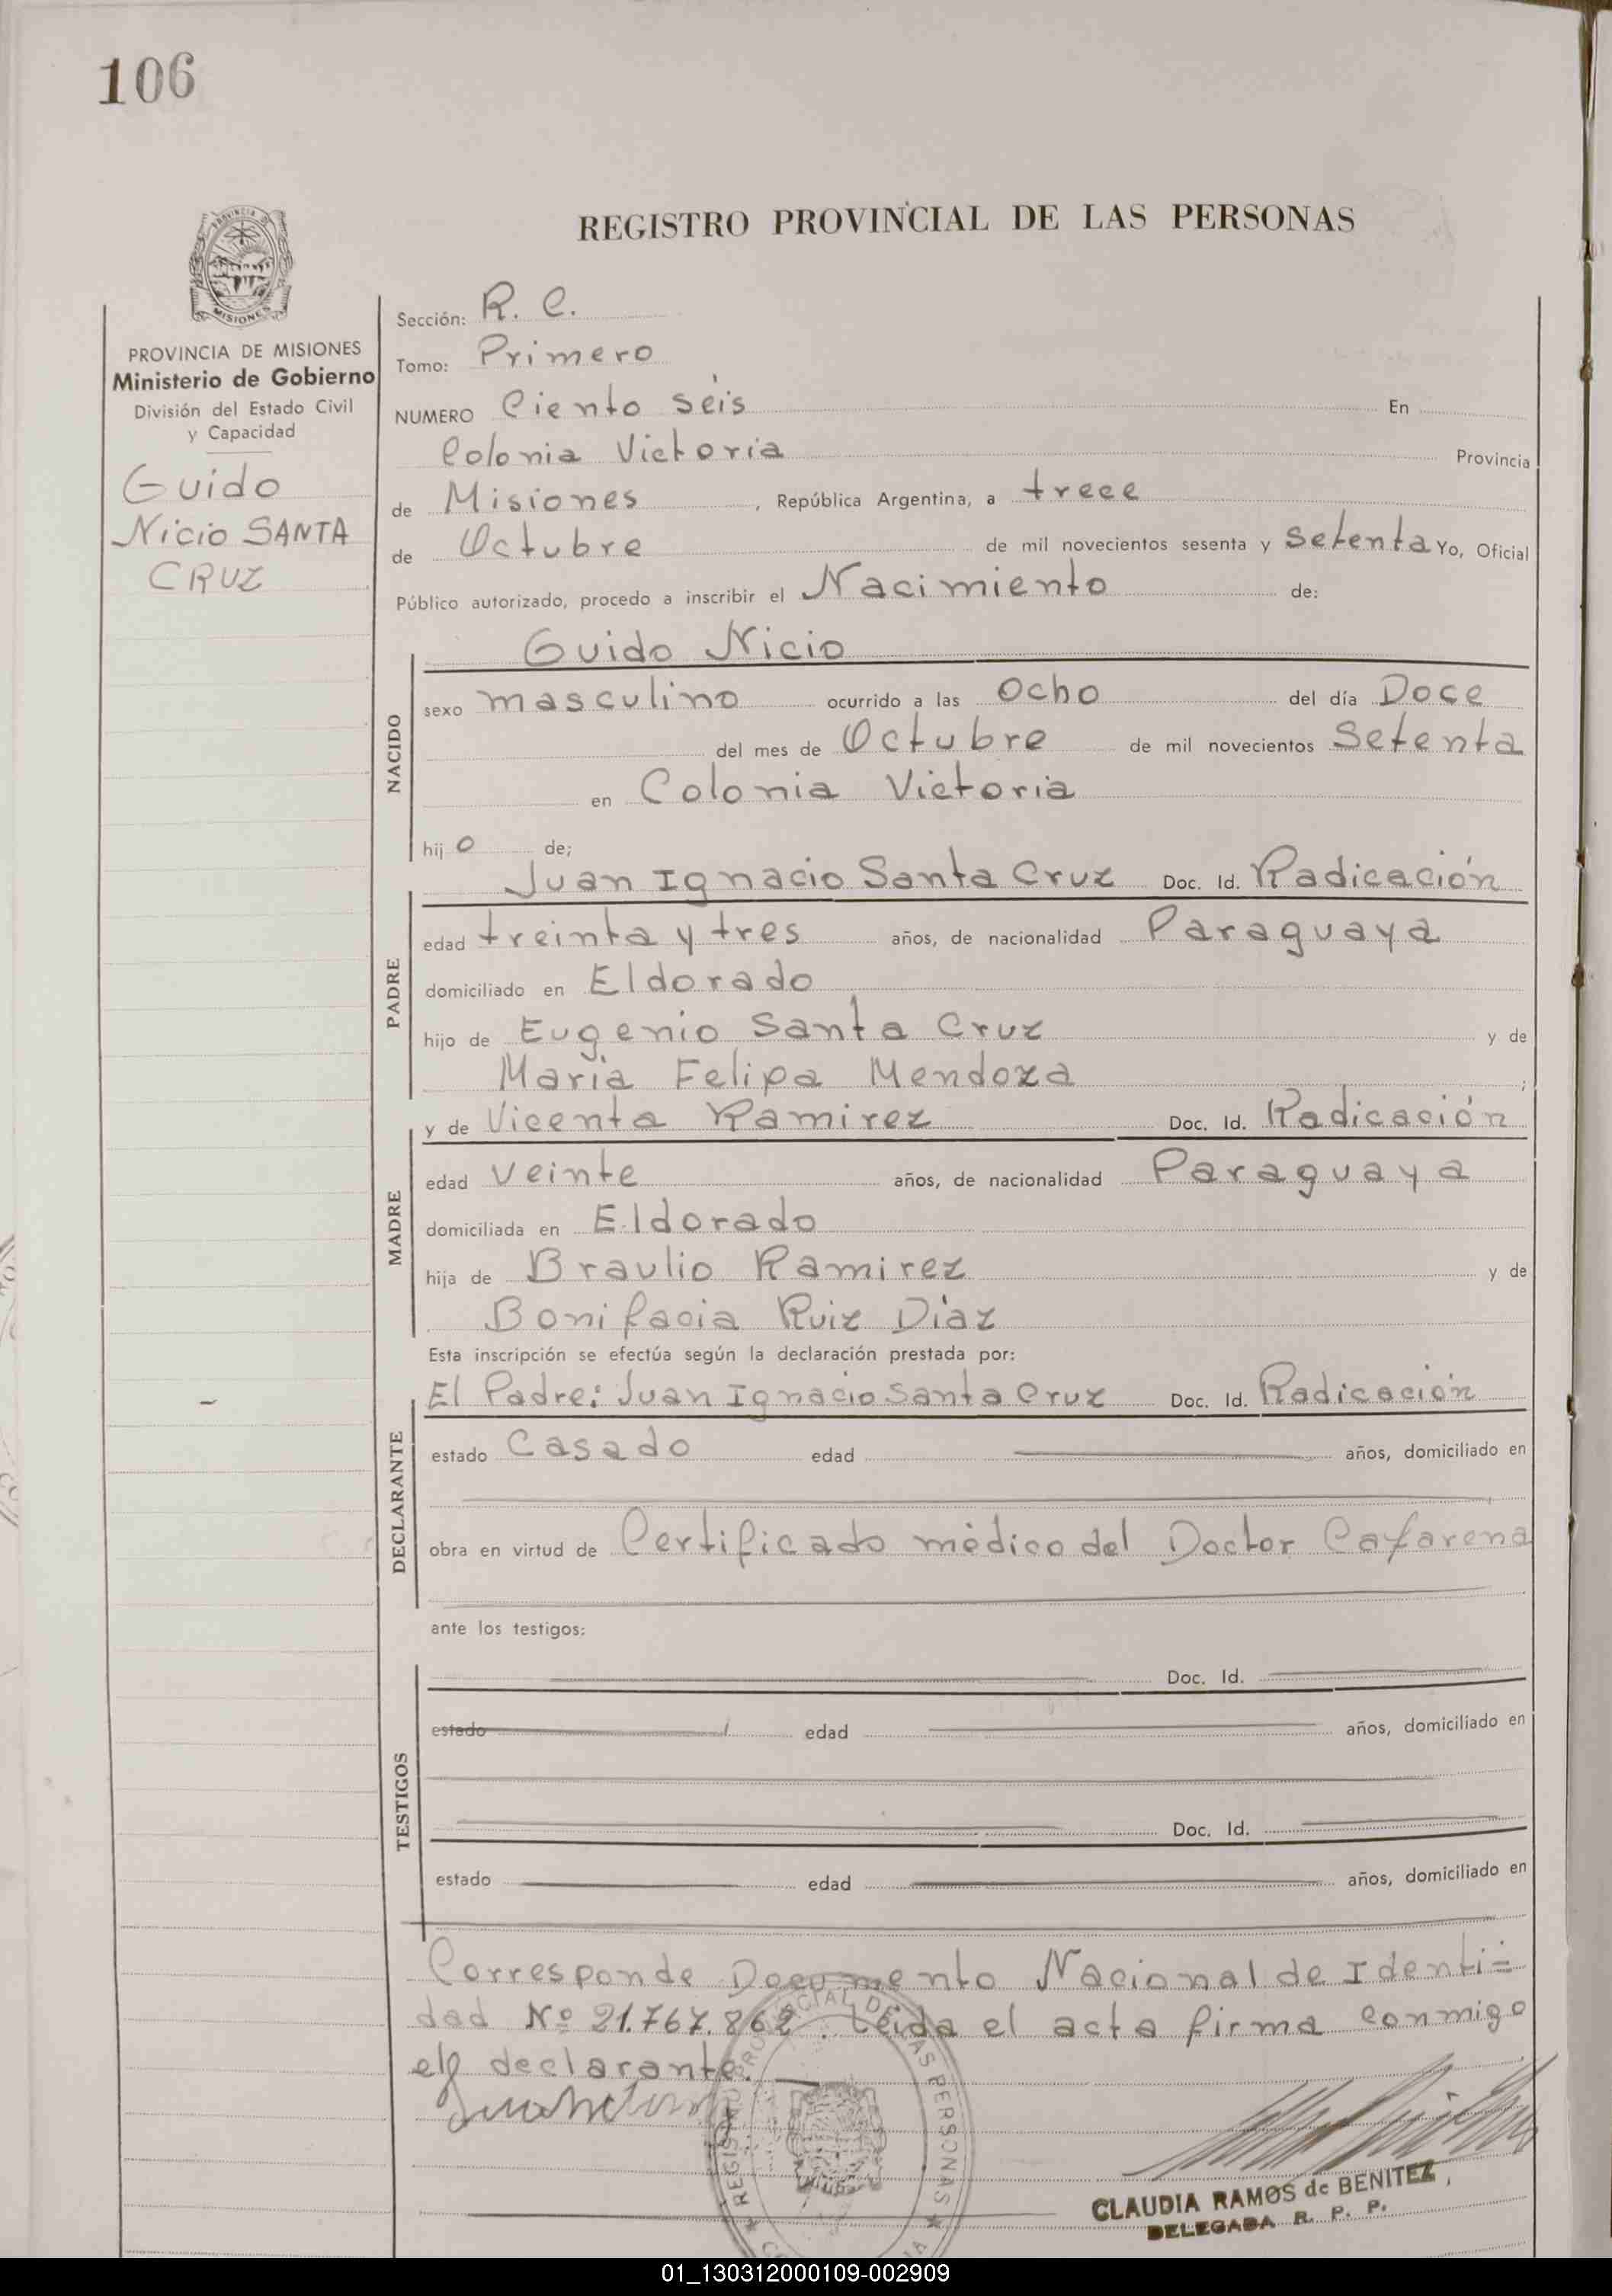 106
REGISTRO PROVINCIAL DE LAS PERSONAS
MISIONES
PROVINCIA DE MISIONES
Ministerio de Gobierno
División del Estado Civil
y Capacidad
Guido
Nicio SANTA
CRUZ
Sección: R. C.
Tomo: Primero
NUMERO Ciento seis En
Colonia Victoria Provincia
de Misiones, República Argentina, a trece
de Octubre de mil novecientos sesenta y Setenta Yo, Oficial
Público autorizado, procedo a inscribir el Nacimiento de:
Guido Nicio
NACIDO
sexo masculino ocurrido a las Ocho del día Doce
del mes de Octubre de mil novecientos Setenta
en Colonia Victoria
hijo de;
PADRE
Juan Ignacio Santa Cruz Doc. Id. Radicación
edad treinta y tres años, de nacionalidad Paraguaya
domiciliado en Eldorado
hijo de Eugenio Santa Cruz y de
Maria Felipa Mendoza ;
MADRE
y de Vicenta Ramirez Doc. Id. Radicación
edad veinte años, de nacionalidad Paraguaya
domiciliada en Eldorado
hija de Braulio Ramirez y de
Bonifacia Ruiz Diaz
Esta inscripción se efectúa según la declaración prestada por:
DECLARANTE
El Padre: Juan Ignacio Santa Cruz Doc. Id. Radicación
estado Casado edad años, domiciliado en
obra en virtud de Certificado médico del Doctor Cafarena
ante los testigos:
TESTIGOS
Doc. Id.
estado edad años, domiciliado en
Doc. Id.
estado edad años, domiciliado en
Corresponde Documento Nacional de Identi=
dad Nº 21.767.862. Leida el acta firma conmigo
el declarante.
REGISTRO PROVINCIAL DE LAS PERSONAS
CLAUDIA RAMOS de BENITEZ,
DELEGADA R. P. P.
01_130312000109-002909